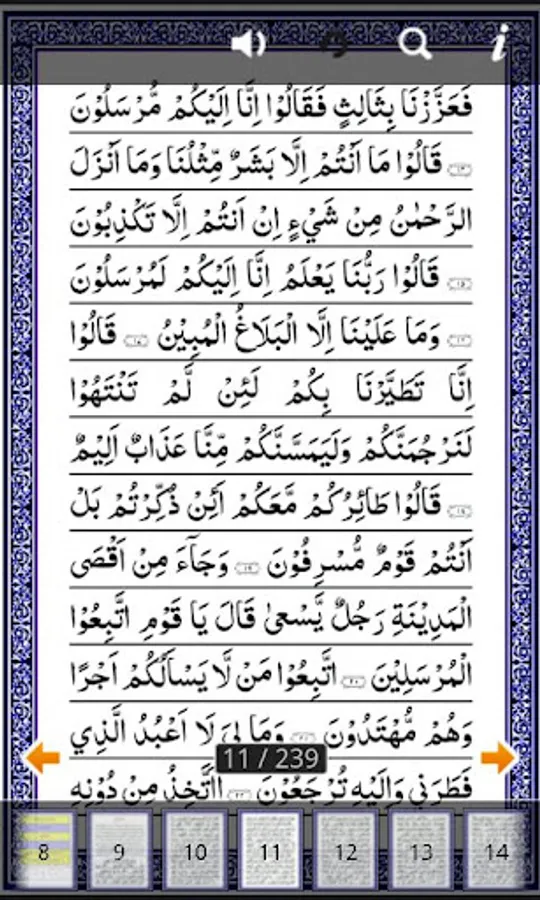 فَعَزَّزْنَا بِثَالِثٍ فَقَالُوْا اِنَّا اِلَيْكُمْ مُّرْسَلُوْنَ
قَالُوْا مَا اَنْتُمْ اِلَّا بَشَرٌ مِّثْلُنَا وَمَا اَنْزَلَ
الرَّحْمٰنُ مِنْ شَيْءٍ اِنْ اَنْتُمْ اِلَّا تَكْذِبُوْنَ
قَالُوْا رَبُّنَا يَعْلَمُ اِنَّا اِلَيْكُمْ لَمُرْسَلُوْنَ
وَمَا عَلَيْنَا اِلَّا الْبَلَاغُ الْمُبِيْنُ قَالُوْا
اِنَّا تَطَيَّرْنَا بِكُمْ لَئِنْ لَّمْ تَنْتَهُوْا
لَنَرْجُمَنَّكُمْ وَلَيَمَسَّنَّكُمْ مِّنَّا عَذَابٌ اَلِيْمٌ
قَالُوْا طَائِرُكُمْ مَّعَكُمْ اَئِنْ ذُكِّرْتُمْ بَلْ
اَنْتُمْ قَوْمٌ مُّسْرِفُوْنَ وَجَآءَ مِنْ اَقْصَى
الْمَدِيْنَةِ رَجُلٌ يَّسْعىٰ قَالَ يَا قَوْمِ اتَّبِعُوْا
الْمُرْسَلِيْنَ اتَّبِعُوْا مَنْ لَّا يَسْاَلُكُمْ اَجْرًا
وَهُمْ مُّهْتَدُوْنَ وَمَا لِيَ لَا اَعْبُدُ الَّذِي
فَطَرَنِي وَاِلَيْهِ تُرْجَعُوْنَ اَاَتَّخِذُ مِنْ دُوْنِهِ
11 / 239
8 9 10 11 12 13 14